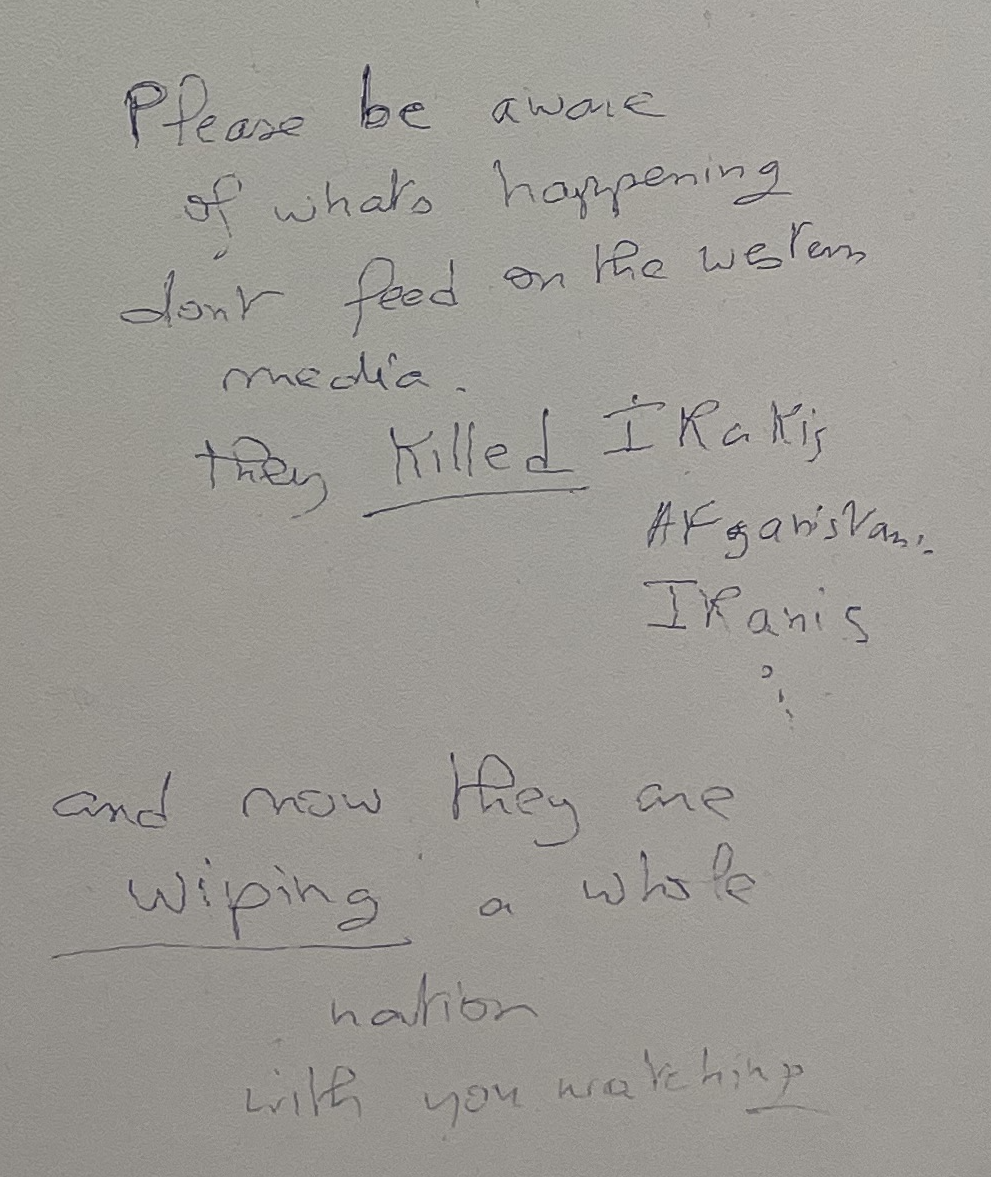 Please be aware
of what's happening
don't feed on the western
media.
they Killed IRaKis
AFganistani.
IRanis
and now they are
wiping a whole
nation
with you watching